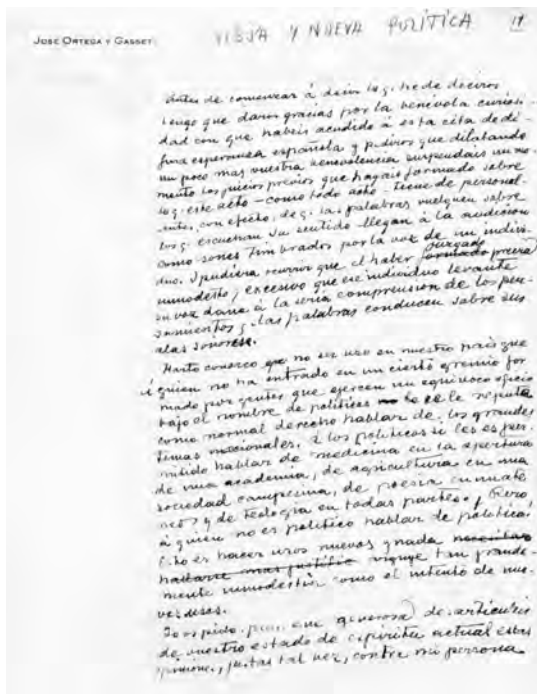 JOSE ORTEGA Y GASSET
VIEJA Y NUEVA POLÍTICA
Antes de comenzar á decir lo q. he de deciros
tengo que daros gracias por la benévola curiosi-
dad con que habeis acudido á esta cita de di-
fusa esperanza española y pediros que dilatando
un poco mas vuestra benevolencia suspendais un mo-
mento los juicios previos que hagais formado sobre
lo q. este acto — como todo acto — tiene de personal.
antes, con efecto, de q. las palabras vuelquen sobre
los q. escuchan su sentido llegan á la audicion
como sones timbrados por la voz de un indivi-
duo. Y pudiera ocurrir que el haber juzgado
inmodesto, excesivo que ese individuo levante
su voz dañe á la seria comprension de los pen-
samientos q. las palabras conducen sobre sus
alas sonoras.
Harto conozco que no ser uso en nuestro pais que
á quien no ha entrado en un cierto gremio for
mado por gentes que ejercen un equívoco oficio
bajo el nombre de políticos se le repute
como normal derecho hablar de los grandes
temas nacionales. A los políticos si les es per-
mitido hablar de medicina en la apertura
de una academia, de agricultura en una
sociedad campesina, de poesia en un ate
neo y de teologia en todas partes. ¡Pero
á quien no es político hablar de política!
Esto es hacer usos nuevos y nada necesitar
hallarse mas justific tan grande-
mente inmodestia como el intento de nue-
vos usos.
Yo os pido que de
de vuestro estado de espiritu actual estas
opiniones, justas tal vez, contra mi persona